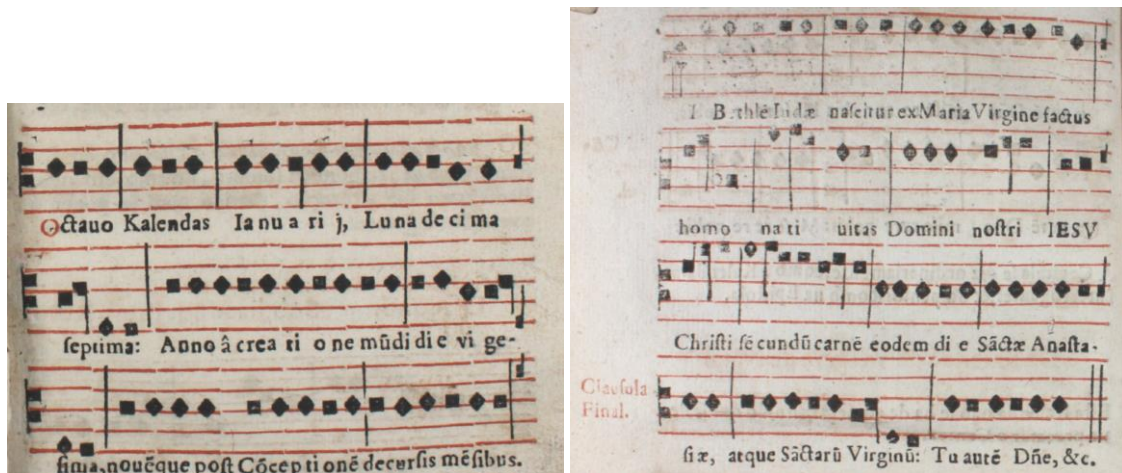 Octauo Kalendas Ia nu a ri j, Lu na de ci ma
septima: Anno â crea ti o ne mũdi di e vi ge-
sima, nouẽque post Cõcep ti onẽ decursis mẽsibus.
I Bethlẽ Iudæ nascitur ex Maria Virgine factus
homo na ti uitas Domini nostri IESV
Christi sẽ cundũ carnẽ eodem di e Sãctæ Anasta-
Clausola
Final.
siæ, atque Sãctarũ Virginũ: Tu autẽ Dñe, &c.